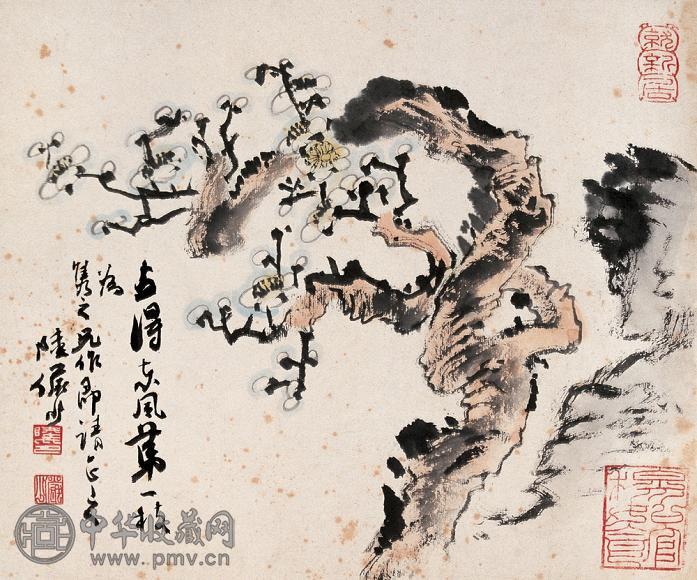 占得东风第一枝
为
雋之兄作即请正之
陸儼少
就新居
中华收藏网
www.pmv.cn